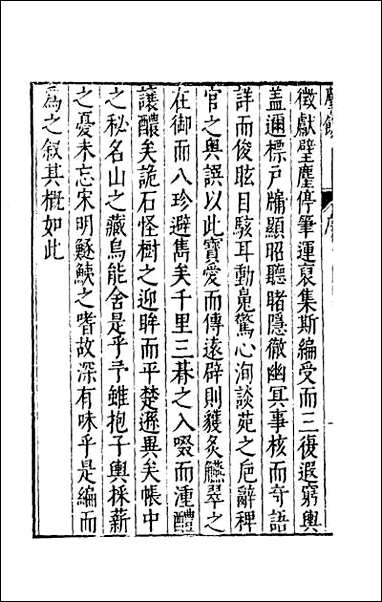 徵獻壁塵停筆運裒集斯編受而三復遐窮輿
盖邇標戶牖顯昭聽睹隱徹幽冥事核而奇語
詳而俊眩目駭耳動䰟驚心洵談苑之巵辭稗
官之輿誤以此寶愛而傳遠辟則䝠炙觾翠之
在御而八珍避雋矣千里三碁之入啜而湩醴
讓醲矣詭石怪樹之迎眸而平楚遜異矣帳中
之秘名山之藏烏能舍是乎予雖抱子輿採薪
之憂未忘宋明鱁鮧之嗜故深有味乎是編而
為之叙其概如此